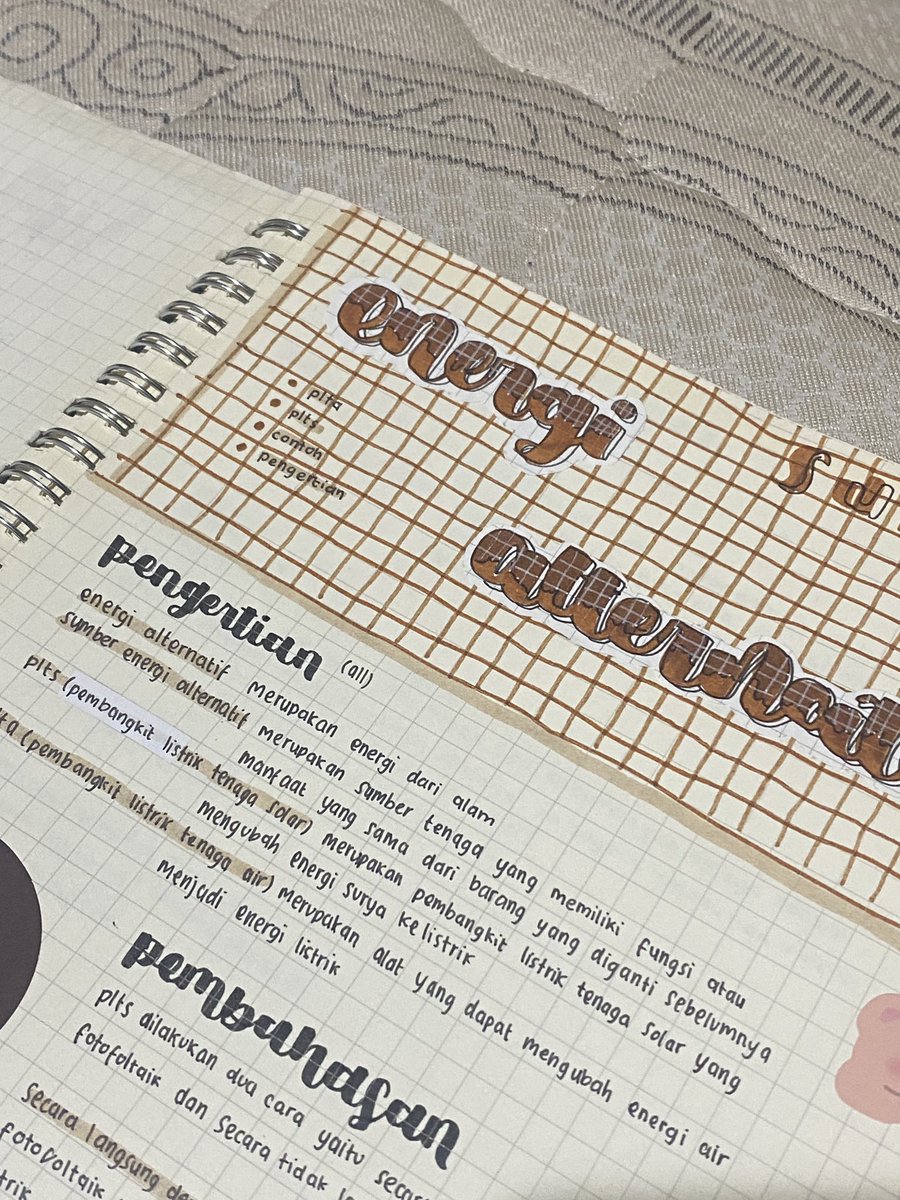 energi
plta
plts
contoh
pengertian
alternatif
pengertian (all)
energi alternatif merupakan energi dari alam
sumber energi alternatif merupakan sumber tenaga yang memiliki fungsi atau
manfaat yang sama dari barang yang diganti sebelumnya
plts (pembangkit listrik tenaga solar) merupakan pembangkit listrik tenaga solar yang
mengubah energi surya ke listrik
(pembangkit listrik tenaga air) merupakan alat yang dapat mengubah energi air
menjadi energi listrik
pembahasan
plts dilakukan dua cara yaitu
fotofoltaik dan secara tidak
secara langsung
fotofoltaik